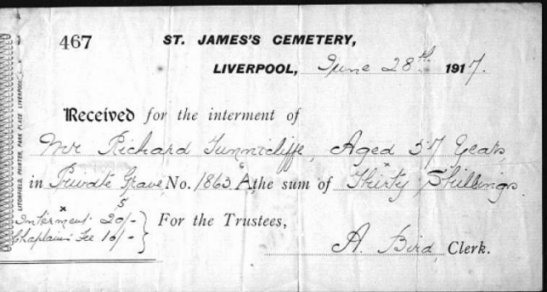 467 ST. JAMES'S CEMETERY,
LIVERPOOL, June 28th 1917.
Received for the interment of
Mr Richard Tunnicliffe, Aged 57 Years
in Private Grave, No. 1863 A, the sum of Thirty Shillings.
Interment 20/-
Chaplain's Fee 10/-
For the Trustees,
A. Bird, Clerk.
LITCHFIELD, PRINTER, PARK PLACE, LIVERPOOL